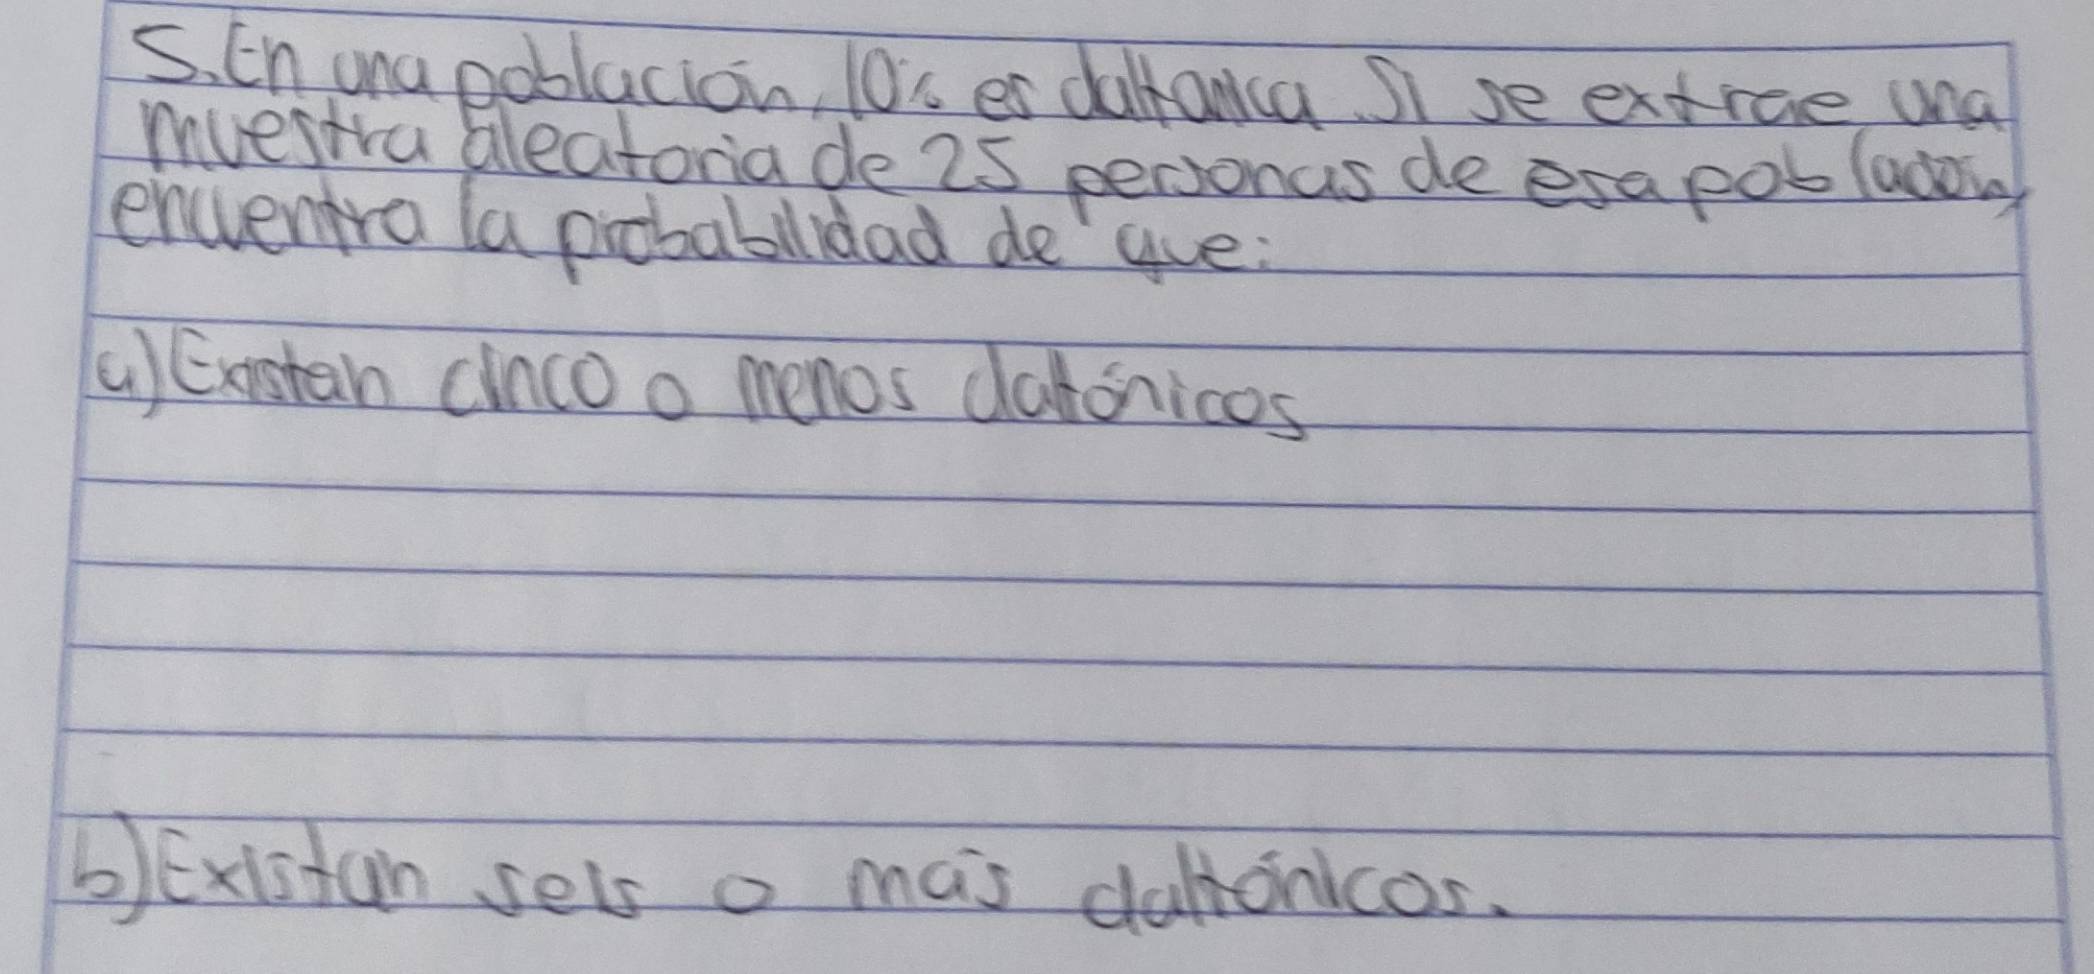 5. En una población, 10% es daltonica. Si se extrae una
muestra aleatoria de 25 personas de esa poblacion,
encuentra la probabilidad de que:
a) Existan cinco o menos daltónicos
b) Existan seis o más daltónicos.